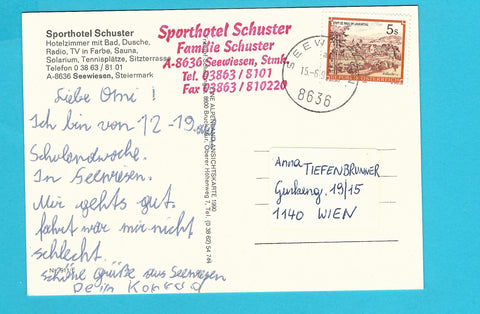 Sporthotel Schuster
Hotelzimmer mit Bad, Dusche,
Radio, TV in Farbe, Sauna,
Solarium, Tennisplätze, Sitzterrasse
Telefon 0 38 63 / 81 01
A-8636 Seewiesen, Steiermark
Sporthotel Schuster
Familie Schuster
A-8636 Seewiesen, Stmk.
Tel. 03863 / 8101
Fax 03863 / 810220
5s
REPUBLIK ÖSTERREICH
SEEW
15-6
8636
Liebe Omi !
Ich bin von 12-19.
Schulandwoche.
In Seewiesen.
Mir gehts gut.
fahrt war mir nicht
schlecht.
schöne grüße aus Seewiesen
Dein Konrad
ALPENLAND ANSICHTSKARTE 1990
8600 Bruck/Mur, Oberer Höhenweg 7, Tel. (0 38 62) 54 7 44
Anna TIEFENBRUNNER
19/15
1140 WIEN